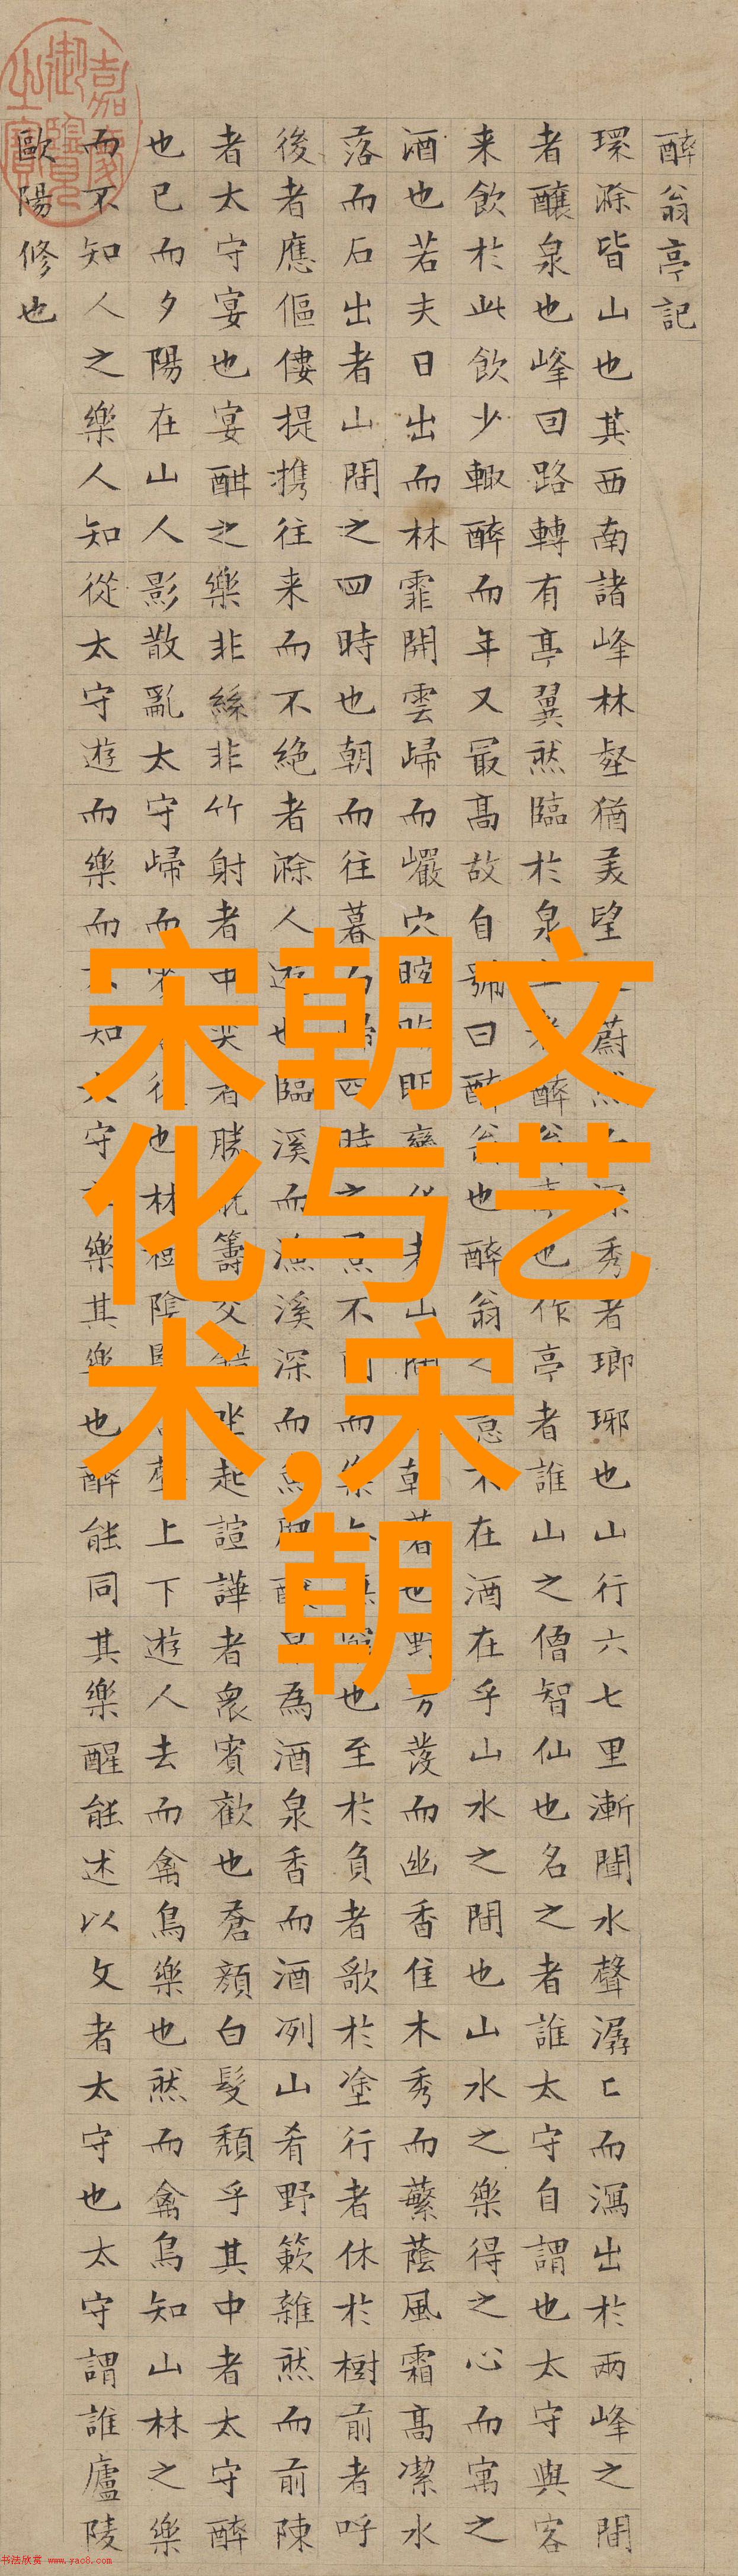 醉翁亭記
環滁皆山也其西南諸峰林壑猶美望蔚然深秀者瑯琊也山行六七里漸聞水聲潺匕而瀉出於兩峰之間
者釀泉也峰回路轉有亭翼然臨於泉上者醉翁亭也作亭者誰山之僧智仙也名之者誰太守自謂也太守與客
来飲於此飲少輒醉而年又最高故自號曰醉翁也醉翁之意不在酒在乎山水之間也山水之樂得之心而寓之
酒也若夫日出而林霏開雲歸而巖穴暝晦明變化者山間朝暮也野芳發而幽香佳木秀而蘩蔭風霜高潔水
落而石出者山間之四時也朝而往暮而歸四時之景不同而樂亦無窮也至於負者歌於塗行者休於樹前者呼
後者應傴僂提攜往来而不絶者滁人遊也臨溪而漁溪深而魚肥釀泉為酒泉香而酒冽山肴野簌雜然而前陳
者太守宴也宴酣之樂非絲非竹射者中奕者勝觥籌交錯坐起諠譁者衆賓歡也蒼顏白髮頹乎其中者太守醉
也已而夕陽在山人影散亂太守歸而賓從也林陰聲上下遊人去而禽鳥樂也然而禽鳥知山林之樂
而不知人之樂人知從太守遊而樂而不知太守之樂其樂也醉能同其樂醒能述以文者太守也太守謂誰廬陵
歐陽修也
嘉慶御覽之寶
宋朝文
化与艺
术,宋
朝
书法欣赏 www.yac8.com